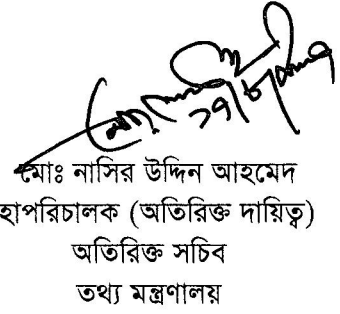 মোঃ নাসির উদ্দিন আহমেদ
হাপরিচালক (অতিরিক্ত দায়িত্ব)
অতিরিক্ত সচিব
তথ্য মন্ত্রণালয়